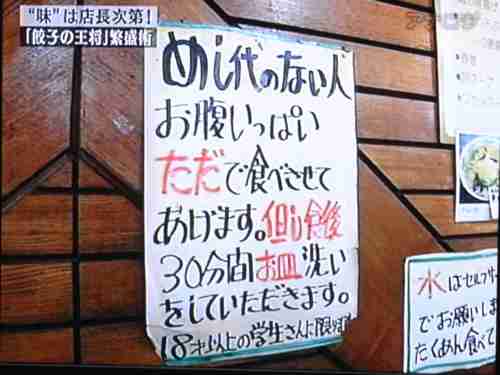 "味"は店長次第!
「餃子の王将」繁盛術
アナログ
めし代のない人
お腹いっぱい
ただで食べさせて
あげます。但し食後
30分間お皿洗い
をしていただきます。
18才以上の学生さんに限ります
水はセルフサ
でお願いしま
たくあん食べて